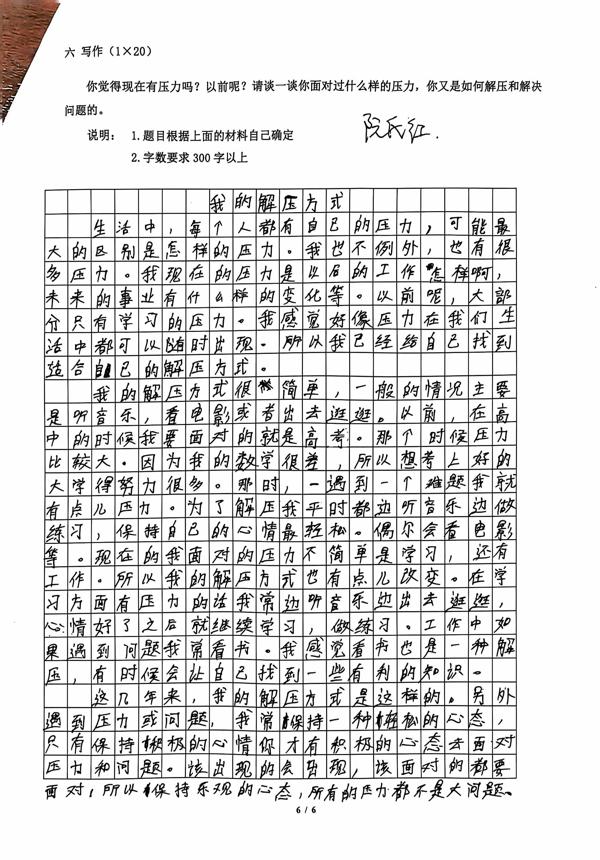 六 写作（1×20）
你觉得现在有压力吗？以前呢？请谈一谈你面对过什么样的压力，你又是如何解压和解决
问题的。
说明： 1.题目根据上面的材料自己确定
2.字数要求 300 字以上
阮氏红.
我的解压方式
生活中，每个人都有自己的压力，可能最
大的区别是怎样的压力。我也不例外，也有很
多压力。我现在的压力是以后的工作怎样啊，
未来的事业有什么样的变化等。以前呢，大部
分只有学习的压力。我感觉好像压力在我们生
活中都可以随时出现。所以我已经给自己找到
结合自己的解压方式。
我的解压方式很简单，一般的情况主要
是听音乐，看电影或者出去逛逛。以前，在高
中的时候我要面对的就是高考。那个时候压力
比较大。因为我的数学很差，所以想考上好的
大学得努力很多。那时，一遇到一个难题我就
有点儿压力。为了解压我平时都边听音乐边做
练习，保持自己的心情最轻松。偶尔会看电影
等。现在的我面对的压力不简单是学习，还有
工作。所以我的解压方式也有点儿改变。在学
习方面有压力的话我常边听音乐边出去逛逛，
心情好了之后就继续学习，做练习。工作中如
果遇到问题我常看书。我感觉看书也是一种解
压，有时候会让自己找到一些有利的知识。
这几年来，我的解压方式是这样的。另外
遇到压力或问题，我常保持一种轻松的心态，
只有保持积极的心情你才有积极的心态去面对
压力和问题。该出现的会出现，该面对的都要
面对，所以保持乐观的心态，所有的压力都不是大问题。
6 / 6